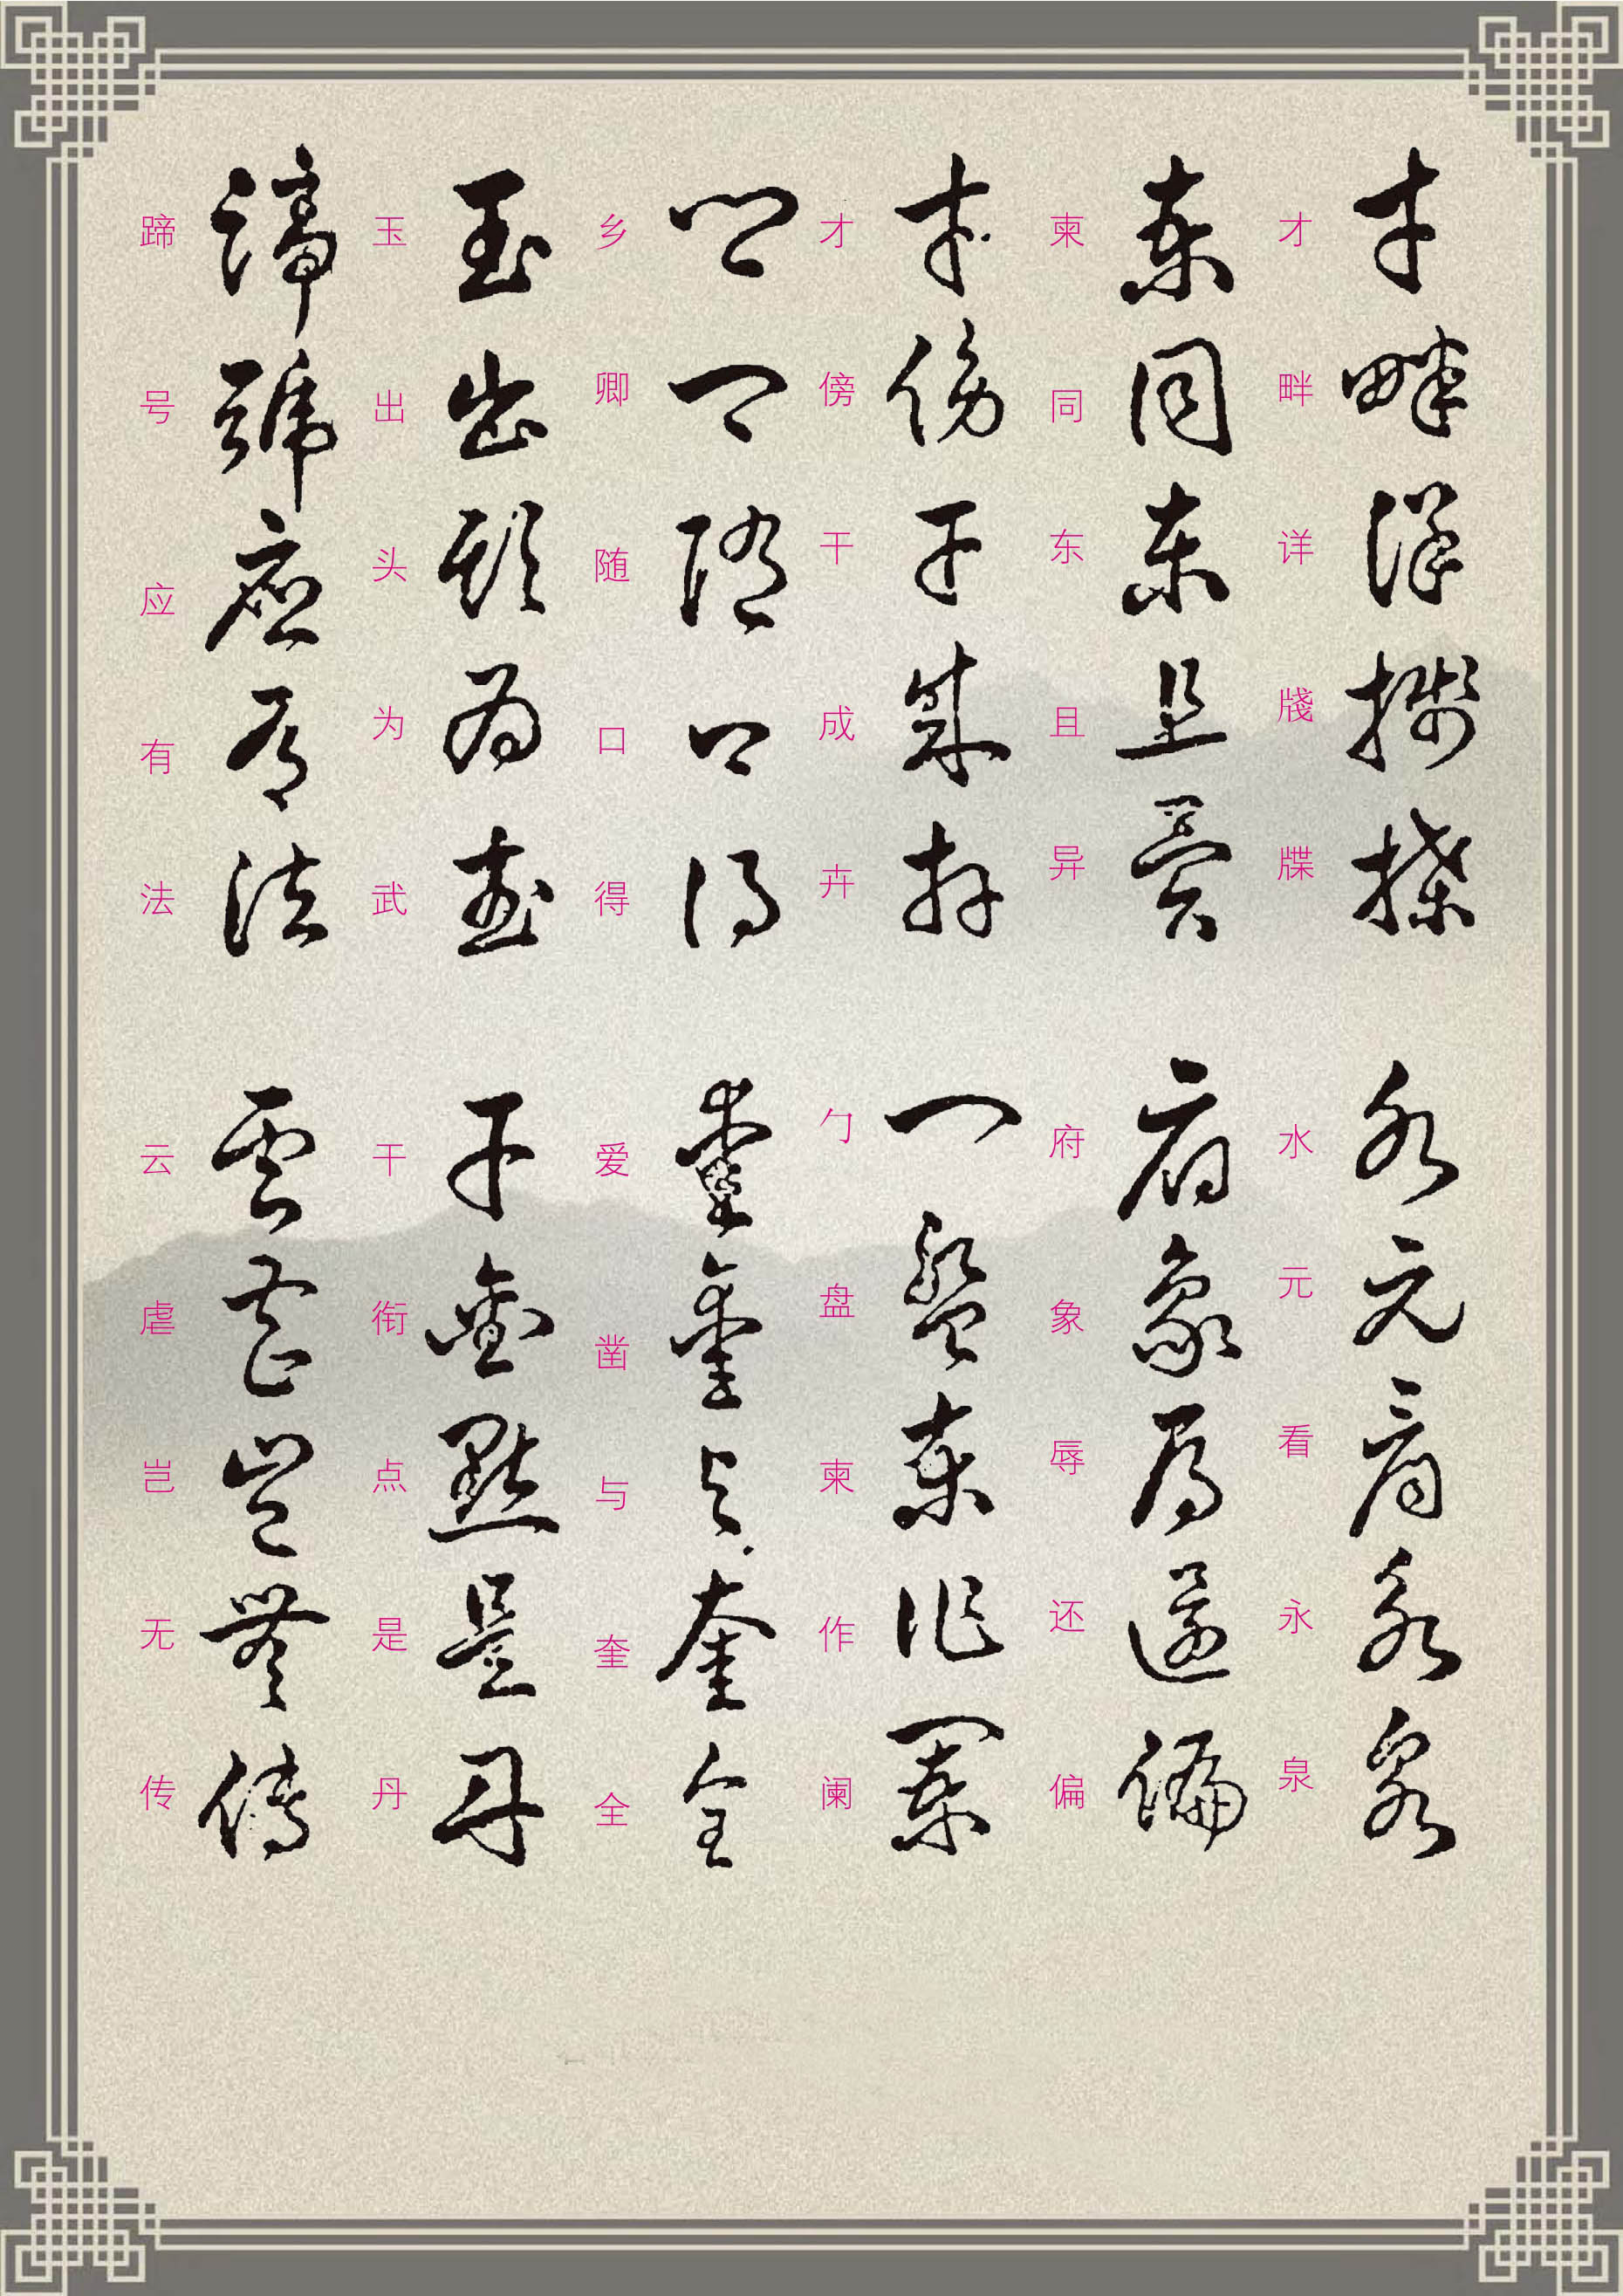 才畔详牋牒
水元看永泉
柬同东且异
府象辱还偏
才傍干成卉
勹盘柬作阑
乡卿随口得
爱凿与奎全
玉出头为武
干衔点是丹
蹄号应有法
云虐岂无传